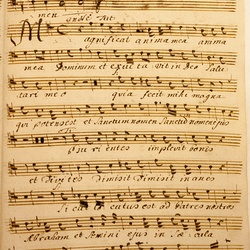 men
Magnificat anima mea anima
mea Dominum et exultavit in Deo Salu
tari meo quia fecit mihi magna
qui potens est et Sanctum nomen Sanctum nomen ejus
Esurientes implevit bonis
et Divites Dimisit Dimisit inanes
Sicut locutus est ad Patres nostros
Abraham et Semini ejus in Saecula